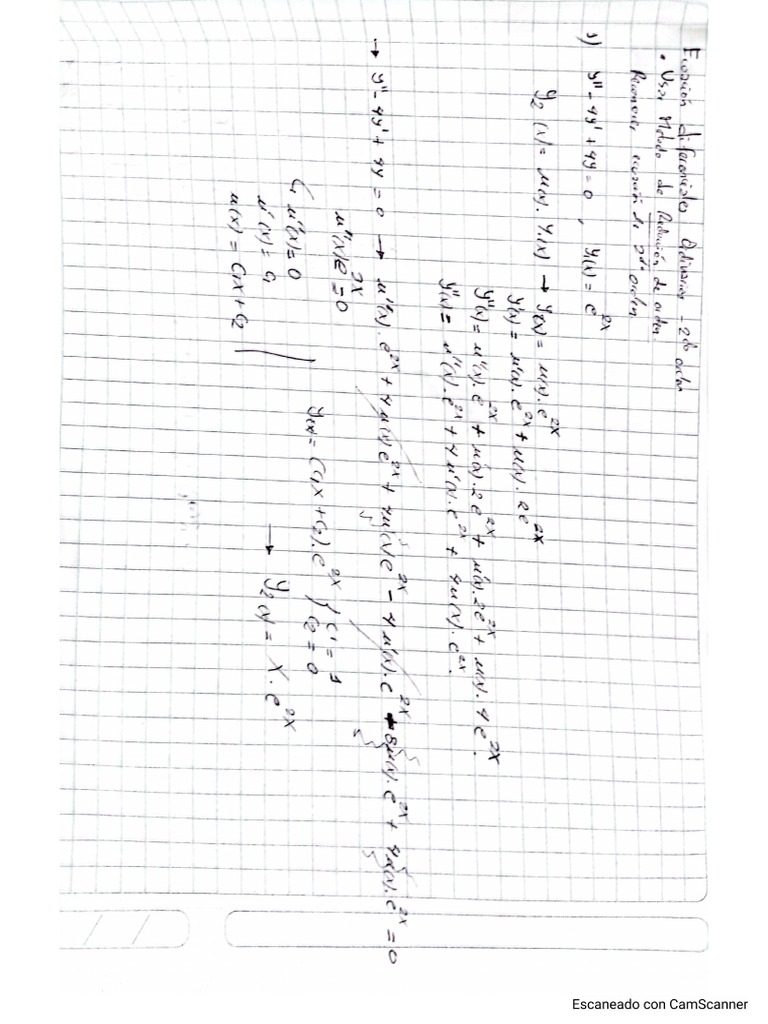 Ecuación diferenciales Ordinarias - 2do orden
• Usar Método de Reducción de orden.
ecuación de 2do orden.
1) y'' - 4y' + 4y = 0 , y₁(x) = e^2x
y₂(x) = μ(x). y₁(x) → y(x) = μ(x). e^2x
y'(x) = μ'(x). e^2x + μ(x). 2e^2x
y''(x) = μ''(x). e^2x + μ'(x). 2e^2x + μ'(x). 2e^2x + μ(x). 4e^2x.
y''(x) = μ''(x). e^2x + 4μ'(x). e^2x + 4μ(x). e^2x.
→ y'' - 4y' + 4y = 0 → μ''(x). e^2x + 4μ'(x)e^2x + 4μ(x)e^2x - 4μ'(x). e^2x - 8μ(x). e^2x + 4μ(x). e^2x = 0
μ''(x)e^2x = 0
μ''(x) = 0
μ'(x) = C₁
μ(x) = C₁x + C₂
y(x) = (C₁x + C₂). e^2x } C₁ = 1 C₂ = 0
→ y₂(x) = x. e^2x
Escaneado con CamScanner